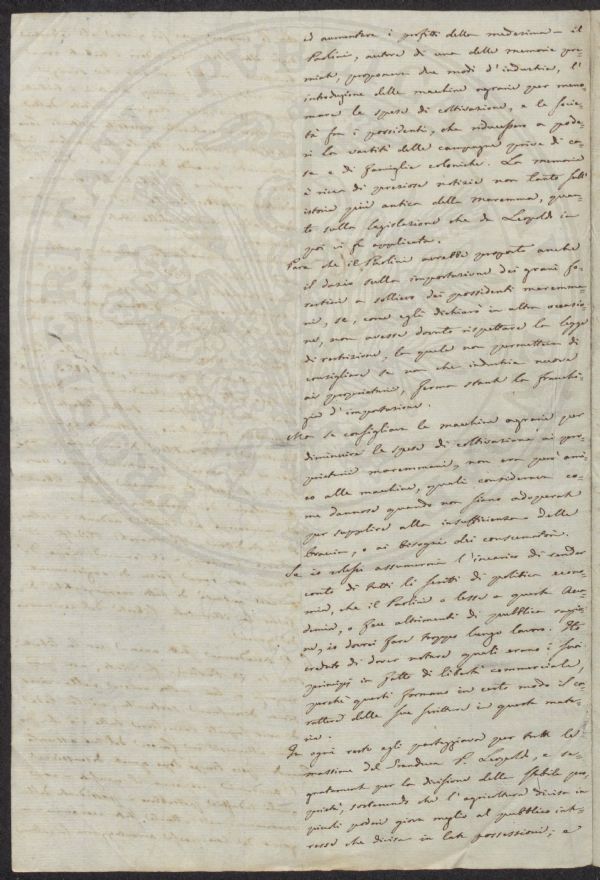 ed aumentare i profitti della medesima – il
Paolini, autore di una delle memorie pre-
miate, proponeva due modi d'industria, l'
introduzione delle macchine agrarie per meno-
mare le spese di coltivazione, e le socie-
tà fra i possidenti, che riducessero a pode-
ri le vastità delle campagne prive di ca-
se e di famiglie coloniche. La memoria
è ricca di preziose notizie non tanto sull'
istoria più antica della maremma, quan-
to sulla legislazione che da Leopoldo in
poi vi fu applicata.
Pare che il Paolini avrebbe proposto anche
il dazio sulla importazione dei grani fo-
restieri a sollievo dei possidenti maremma-
ni, se, come egli dichiarò in altra occasio-
ne, non avesse dovuto rispettare la legge
di restrizione, la quale non permetteva di
consigliare se non che industrie nuove
ai proprietari, ferma stante la franchi-
gia d'importazione.
Ma se consigliava le macchine agrarie per
diminuire le spese di coltivazione ai pro-
prietari maremmani, non era però ami-
co alle macchine, quali considerava co-
me dannose quando non siano adoperate
per supplire alla insufficienza delle
braccia, o ai bisogni dei consumatori.
Se io volessi assumermi l'incarico di render
conto di tutti li scritti di politica econo-
mia, che il Paolini o lesse a quest'Acca-
demia, o fece altrimenti di pubblica ragio-
ne, io dovrei fare troppo lungo lavoro. Ho
creduto di dover notare quali erano i suoi
principj in fatto di libertà commerciale,
perchè questi formano in certo modo il ca-
rattere delle sue scritture in questa mate-
ria.
In ogni resto egli parteggiava per tutte le
massime del Granduca P. Leopoldo, e se-
gnatamente per la divisione della stabile pro-
prietà, sostenendo che l'agricoltura divisa in
piccoli poderi giova meglio al pubblico inte-
resse che divisa in late possessioni; e